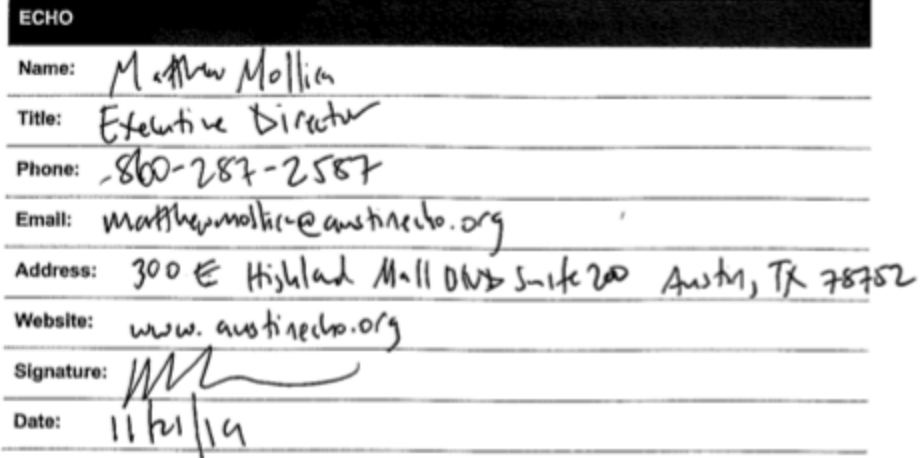 ECHO
Name: Matthew Mollica
Title: Executive Director
Phone: 860-287-2587
Email: matthewmollica@austinecho.org
Address: 300 E Highland Mall Blvd Suite 200 Austin, TX 78752
Website: www.austinecho.org
Signature:
Date: 11/21/19